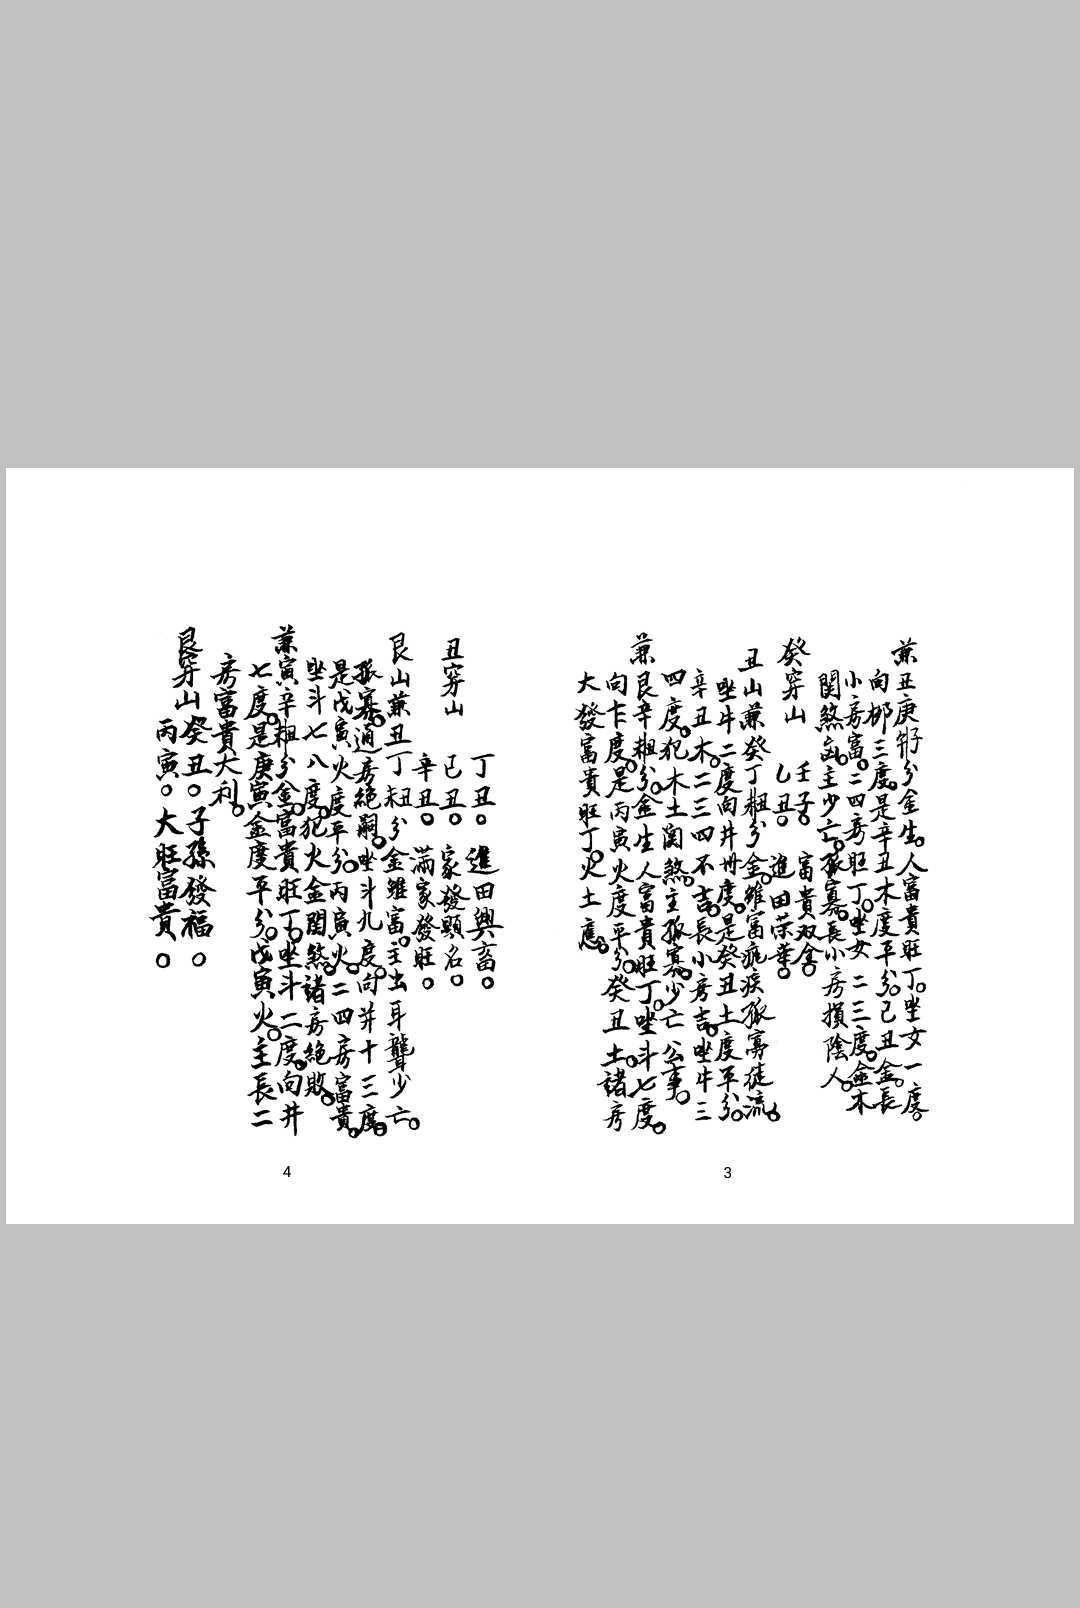 兼丑庚分金生。人富貴旺丁。坐女一度。
向柳三度。是辛丑木度平分。己丑金。長
小房富。二四房旺丁。坐女二三度。金木
関煞凶。主少亡。孤寡。長小房損陰人。
癸穿山
壬子。富貴双全。
乙丑。進田荣華。
丑山兼癸丁粗分金。雖富瘋疾孤寡徒流。
坐牛二度向井卅度。是癸丑土度平分。
辛丑木。二三四不吉。長小房吉。坐牛三
四度。犯木土関煞。主孤寡。少亡公事。
兼艮辛粗分。金生人富貴旺丁。坐斗七度。
向度。是丙寅火度平分。癸丑土。諸房
大發富貴旺丁。火土應。
3
丑穿山
丁丑。進田興畜。
己丑。家發顯名。
辛丑。滿家發旺。
艮山兼丑丁未丑分金雖富。主出耳聾少亡。
孤寡。通房絕嗣。坐斗九度。向井十三度。
是戊寅火度平分。丙寅火。二四房富貴。
坐斗七八度。犯火金関煞。諸房絕敗。
兼寅辛粗分金。富貴旺丁。坐斗二度。向井
七度。是庚寅金度平分。戊寅火。主長二
房富貴大利。
艮穿山
癸丑。子孫發福。
丙寅。大旺富貴。
4